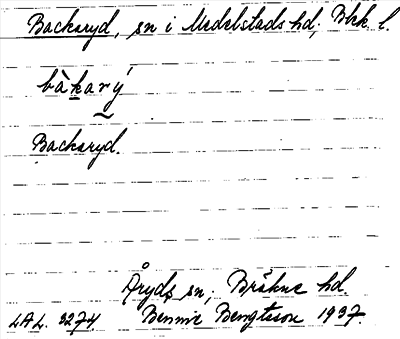 Backaryd, sn i Medelstads hd, Blek. l.
bàkarý
Backaryd.
Åryds sn, Bräkne hd.
LAL. 3274 Bennie Bengtsson 1937.